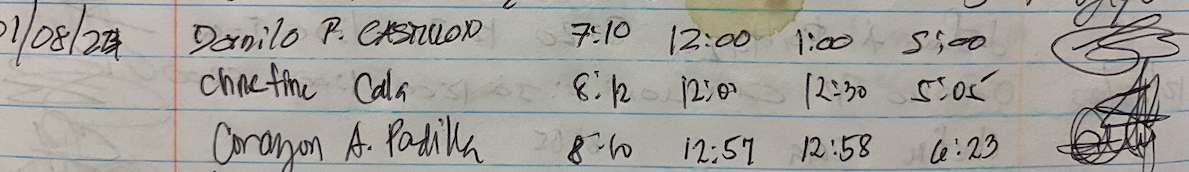 01/08/24 Danilo P. CASTILLON 7:10 12:00 1:00 5:00
Cala 8:12 12:01 12:30 5:05
Corazon A. Padilla 8:10 12:57 12:58 6:23